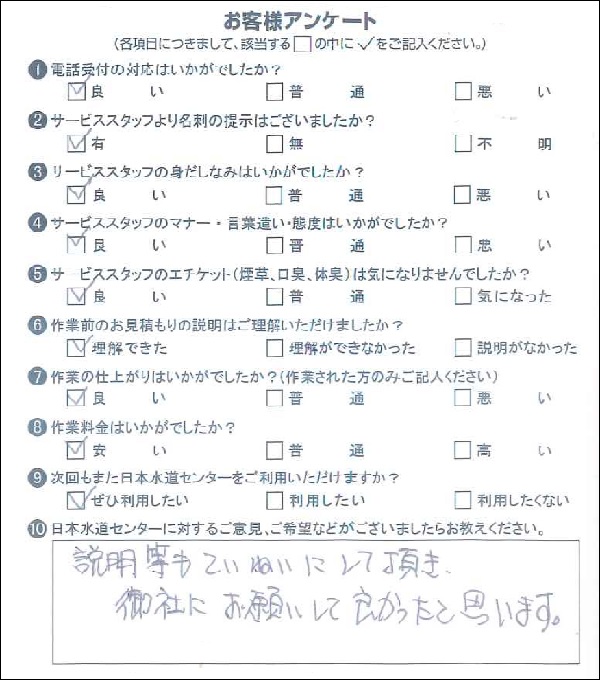 お客様アンケート
(各項目につきまして、該当する□の中に✓をご記入ください。)
❶電話受付の対応はいかがでしたか?
☑良い □普通 □悪い
❷サービススタッフより名刺の提示はございましたか?
☑有 □無 □不明
❸サービススタッフの身だしなみはいかがでしたか?
☑良い □普通 □悪い
❹サービススタッフのマナー・言葉遣い・態度はいかがでしたか?
☑良い □普通 □悪い
❺サービススタッフのエチケット(煙草、口臭、体臭)は気になりませんでしたか?
☑良い □普通 □気になった
❻作業前のお見積もりの説明はご理解いただけましたか?
☑理解できた □理解ができなかった □説明がなかった
❼作業の仕上がりはいかがでしたか?(作業された方のみご記入ください)
☑良い □普通 □悪い
❽作業料金はいかがでしたか?
☑安い □普通 □高い
❾次回もまた日本水道センターをご利用いただけますか?
☑ぜひ利用したい □利用したい □利用したくない
❿日本水道センターに対するご意見、ご希望などがございましたらお教えください。
説明等もていねいにして頂き、
御社にお願いして良かったと思います。